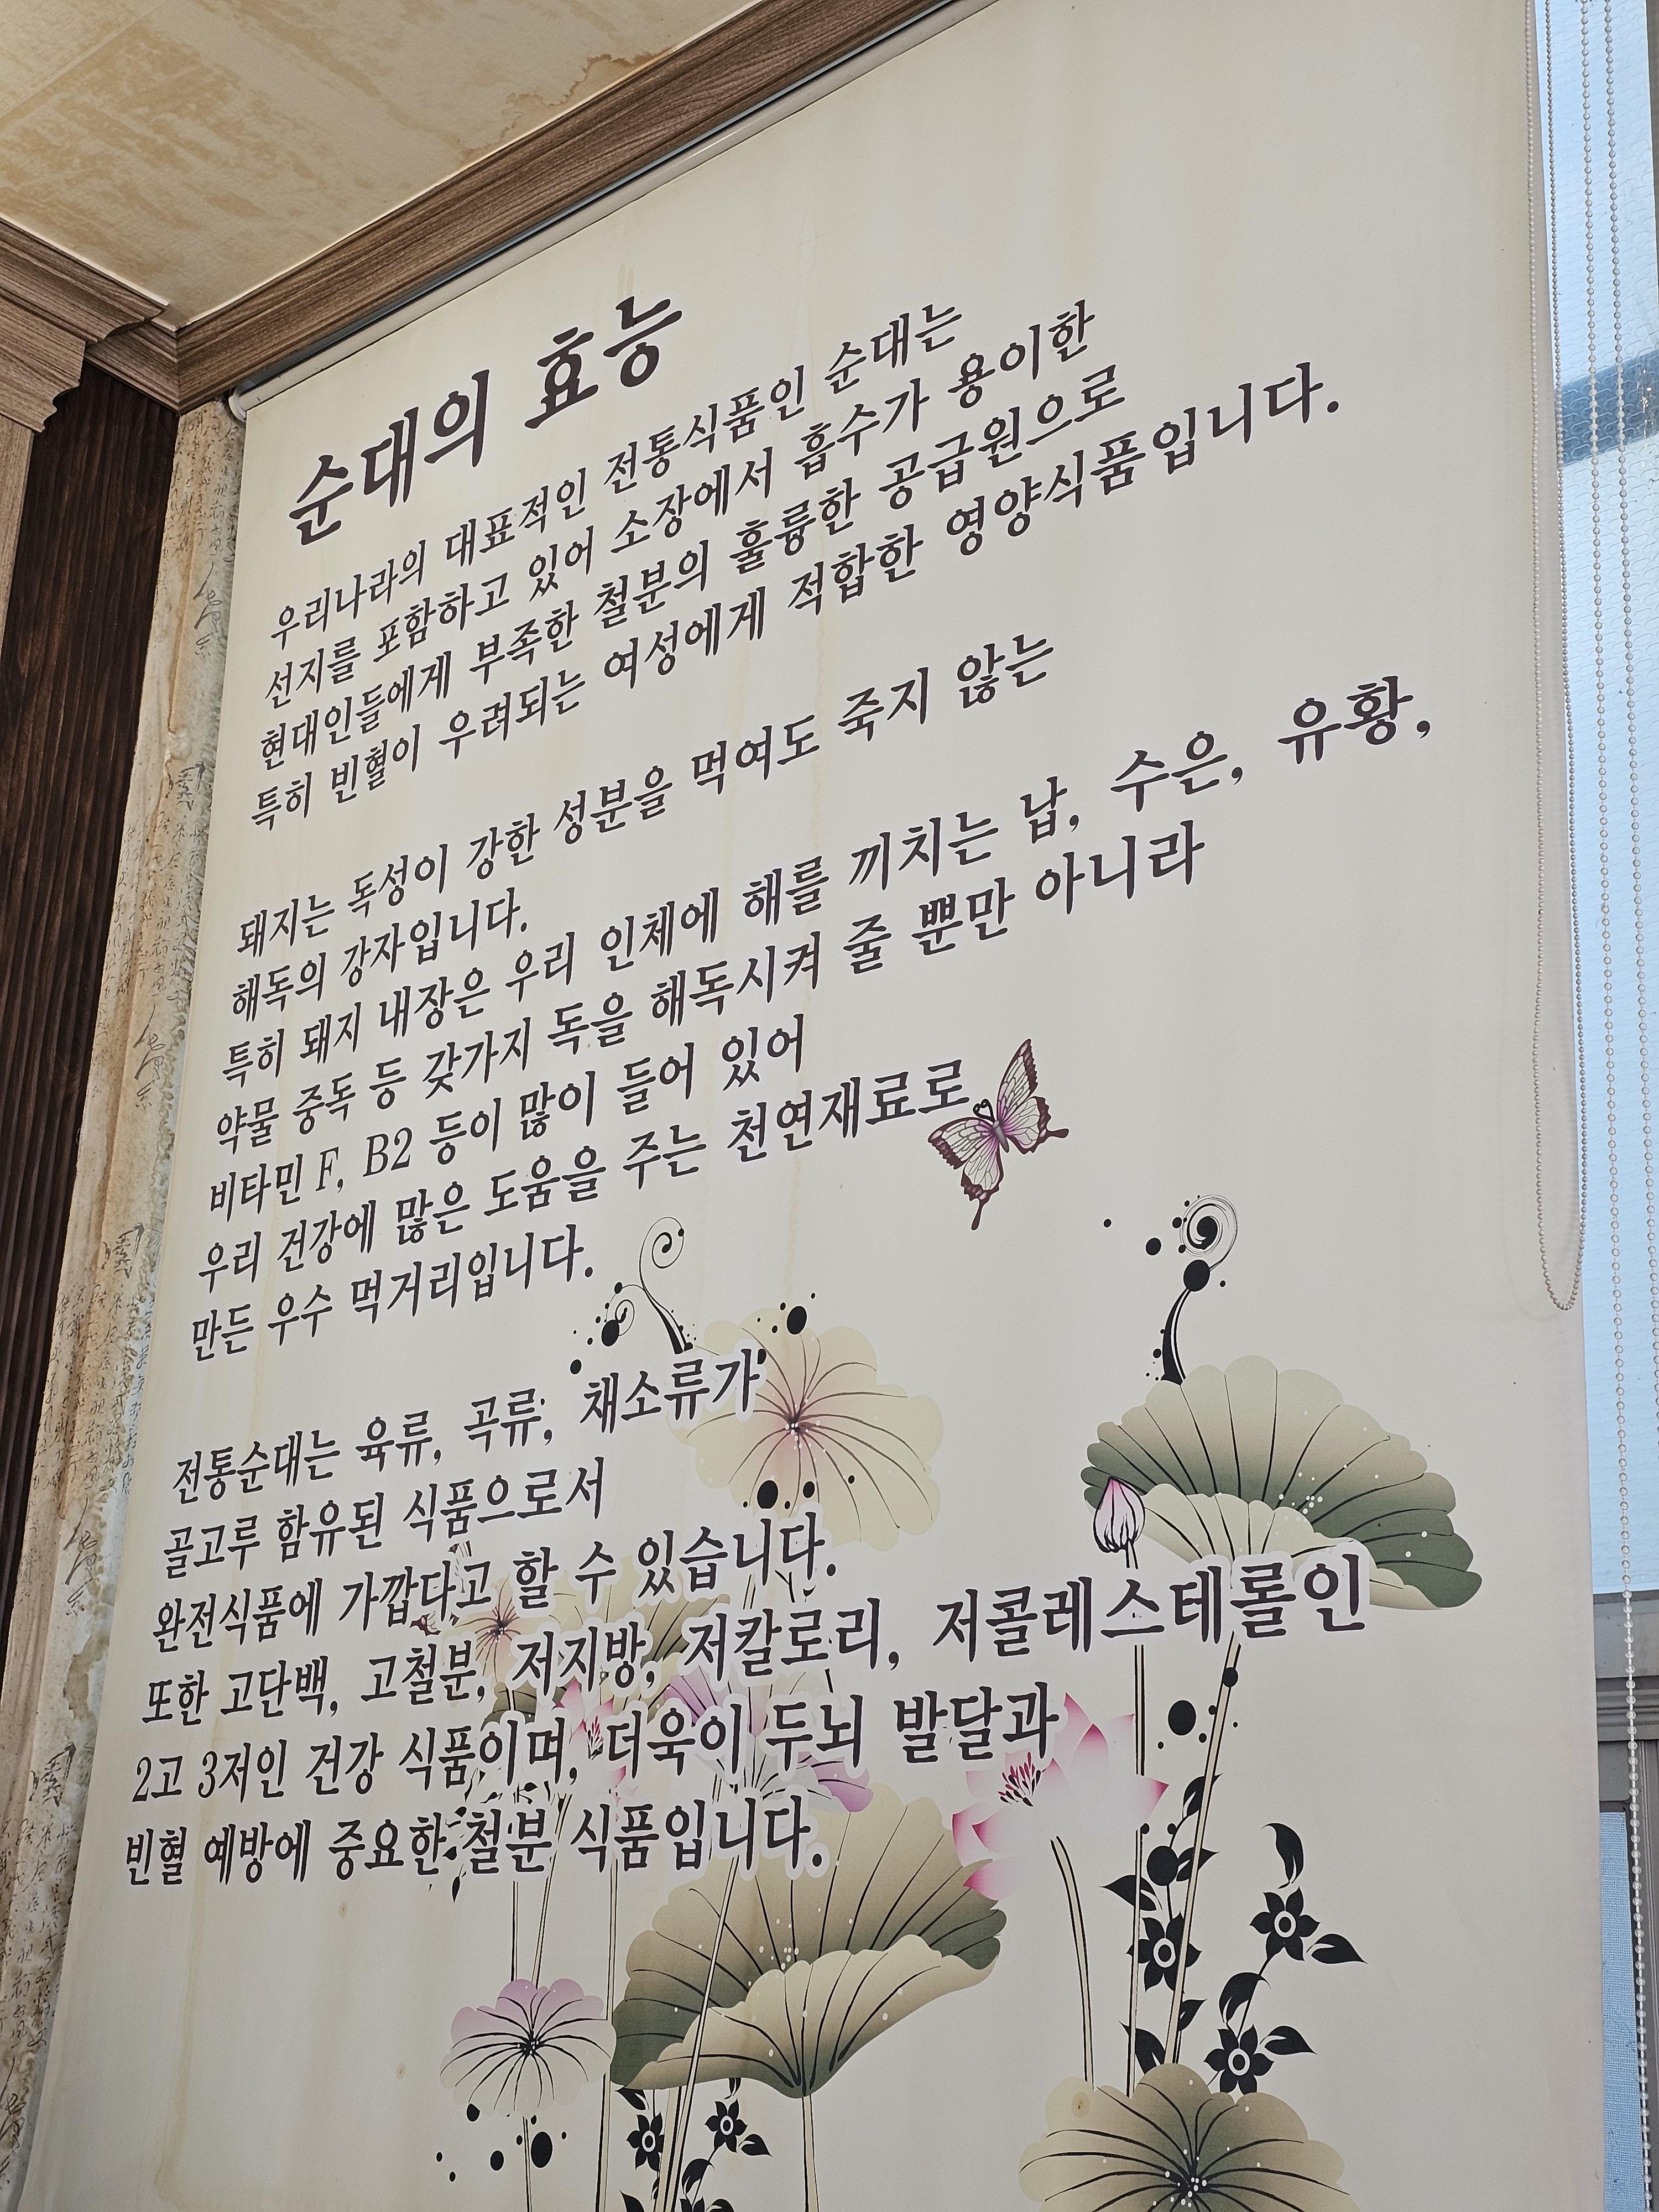 순대의 효능
우리나라의 대표적인 전통식품인 순대는
선지를 포함하고 있어 소장에서 흡수가 용이한
현대인들에게 부족한 철분의 훌륭한 공급원으로
특히 빈혈이 우려되는 여성에게 적합한 영양식품입니다.
돼지는 독성이 강한 성분을 먹여도 죽지 않는
해독의 강자입니다.
특히 돼지 내장은 우리 인체에 해를 끼치는 납, 수은, 유황,
약물 중독 등 갖가지 독을 해독시켜 줄 뿐만 아니라
비타민 F, B2 등이 많이 들어 있어
우리 건강에 많은 도움을 주는 천연재료로
만든 우수 먹거리입니다.
전통순대는 육류, 곡류, 채소류가
골고루 함유된 식품으로서
완전식품에 가깝다고 할 수 있습니다.
또한 고단백, 고철분, 저지방, 저칼로리, 저콜레스테롤인
2고 3저인 건강 식품이며, 더욱이 두뇌 발달과
빈혈 예방에 중요한 철분 식품입니다.